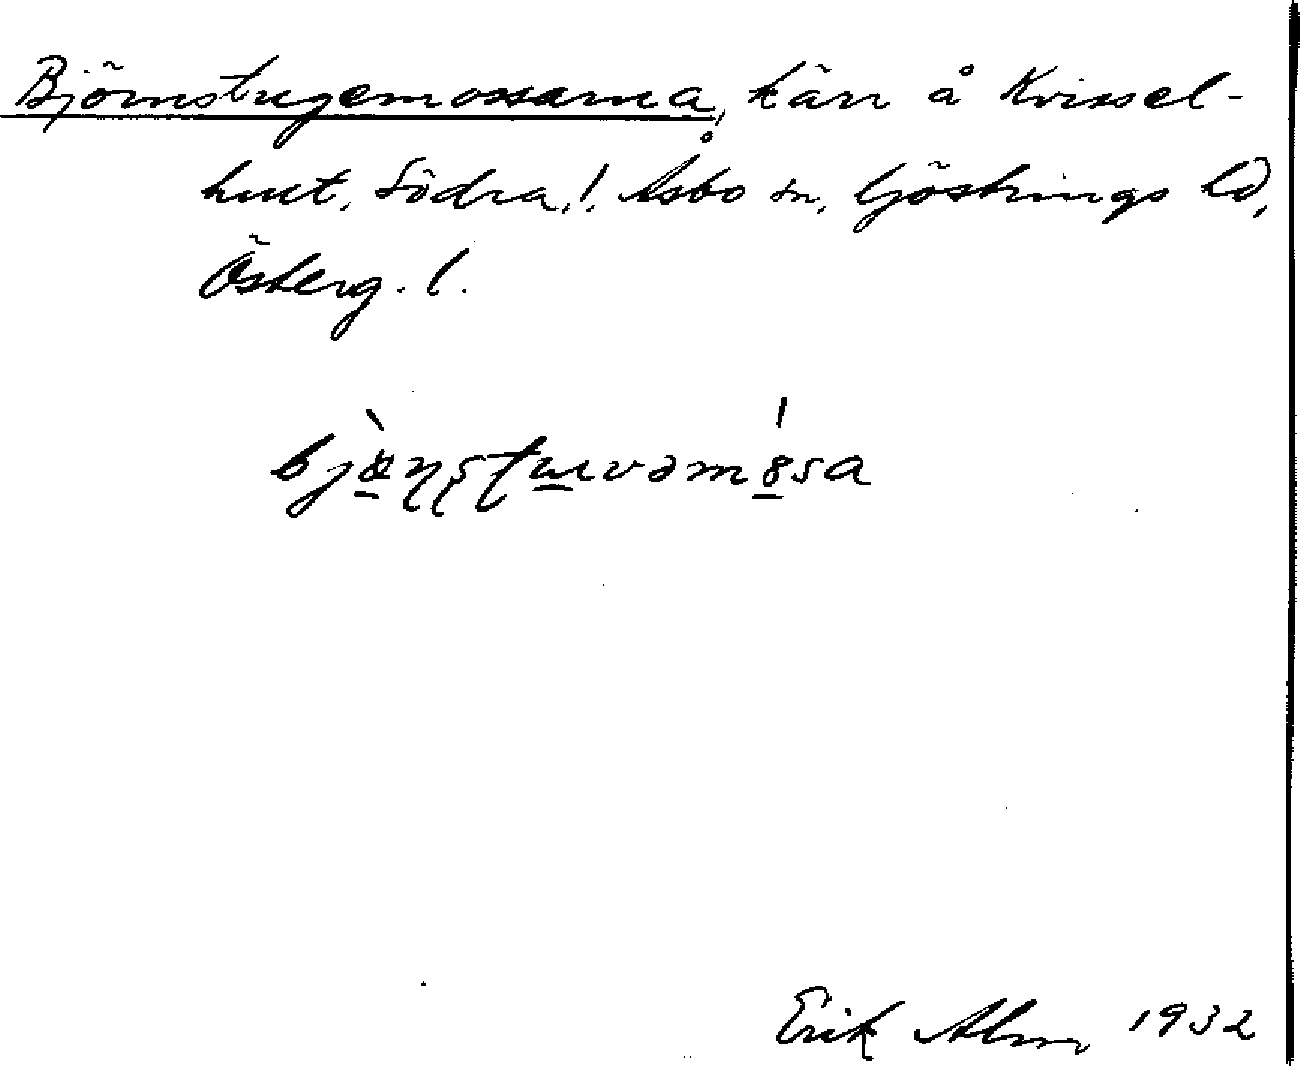 Björnstugemossarna, kärr å Kvissel-
hult, Södra,!, Åsbo sn, Göstrings hd,
Österg. l.
bjæ̀ɳʂʈuvəmósa
Erik Alm 1932